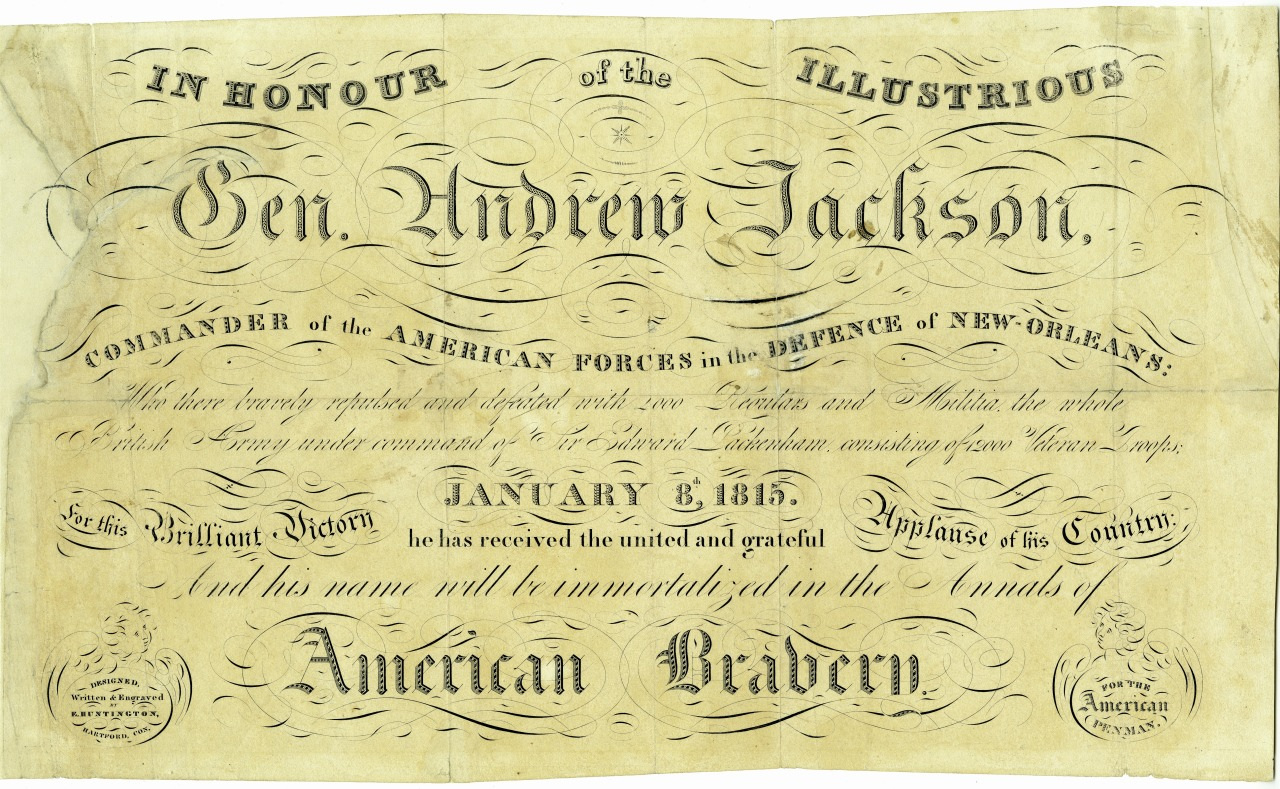 IN HONOUR of the ILLUSTRIOUS
Gen. Andrew Jackson,
COMMANDER of the AMERICAN FORCES in the DEFENCE of NEW-ORLEANS:
Who there bravely repulsed and defeated with 2000 Regulars and Militia, the whole
British Army under command of Sir Edward Packenham, consisting of 12000 Veteran Troops;
JANUARY 8th, 1815.
For this Brilliant Victory he has received the united and grateful Applause of his Country:
And his name will be immortalized in the Annals of
American Bravery.
DESIGNED,
Written & Engraved
BY
E. HUNTINGTON,
HARTFORD, CON.
FOR THE
American
PENMAN.